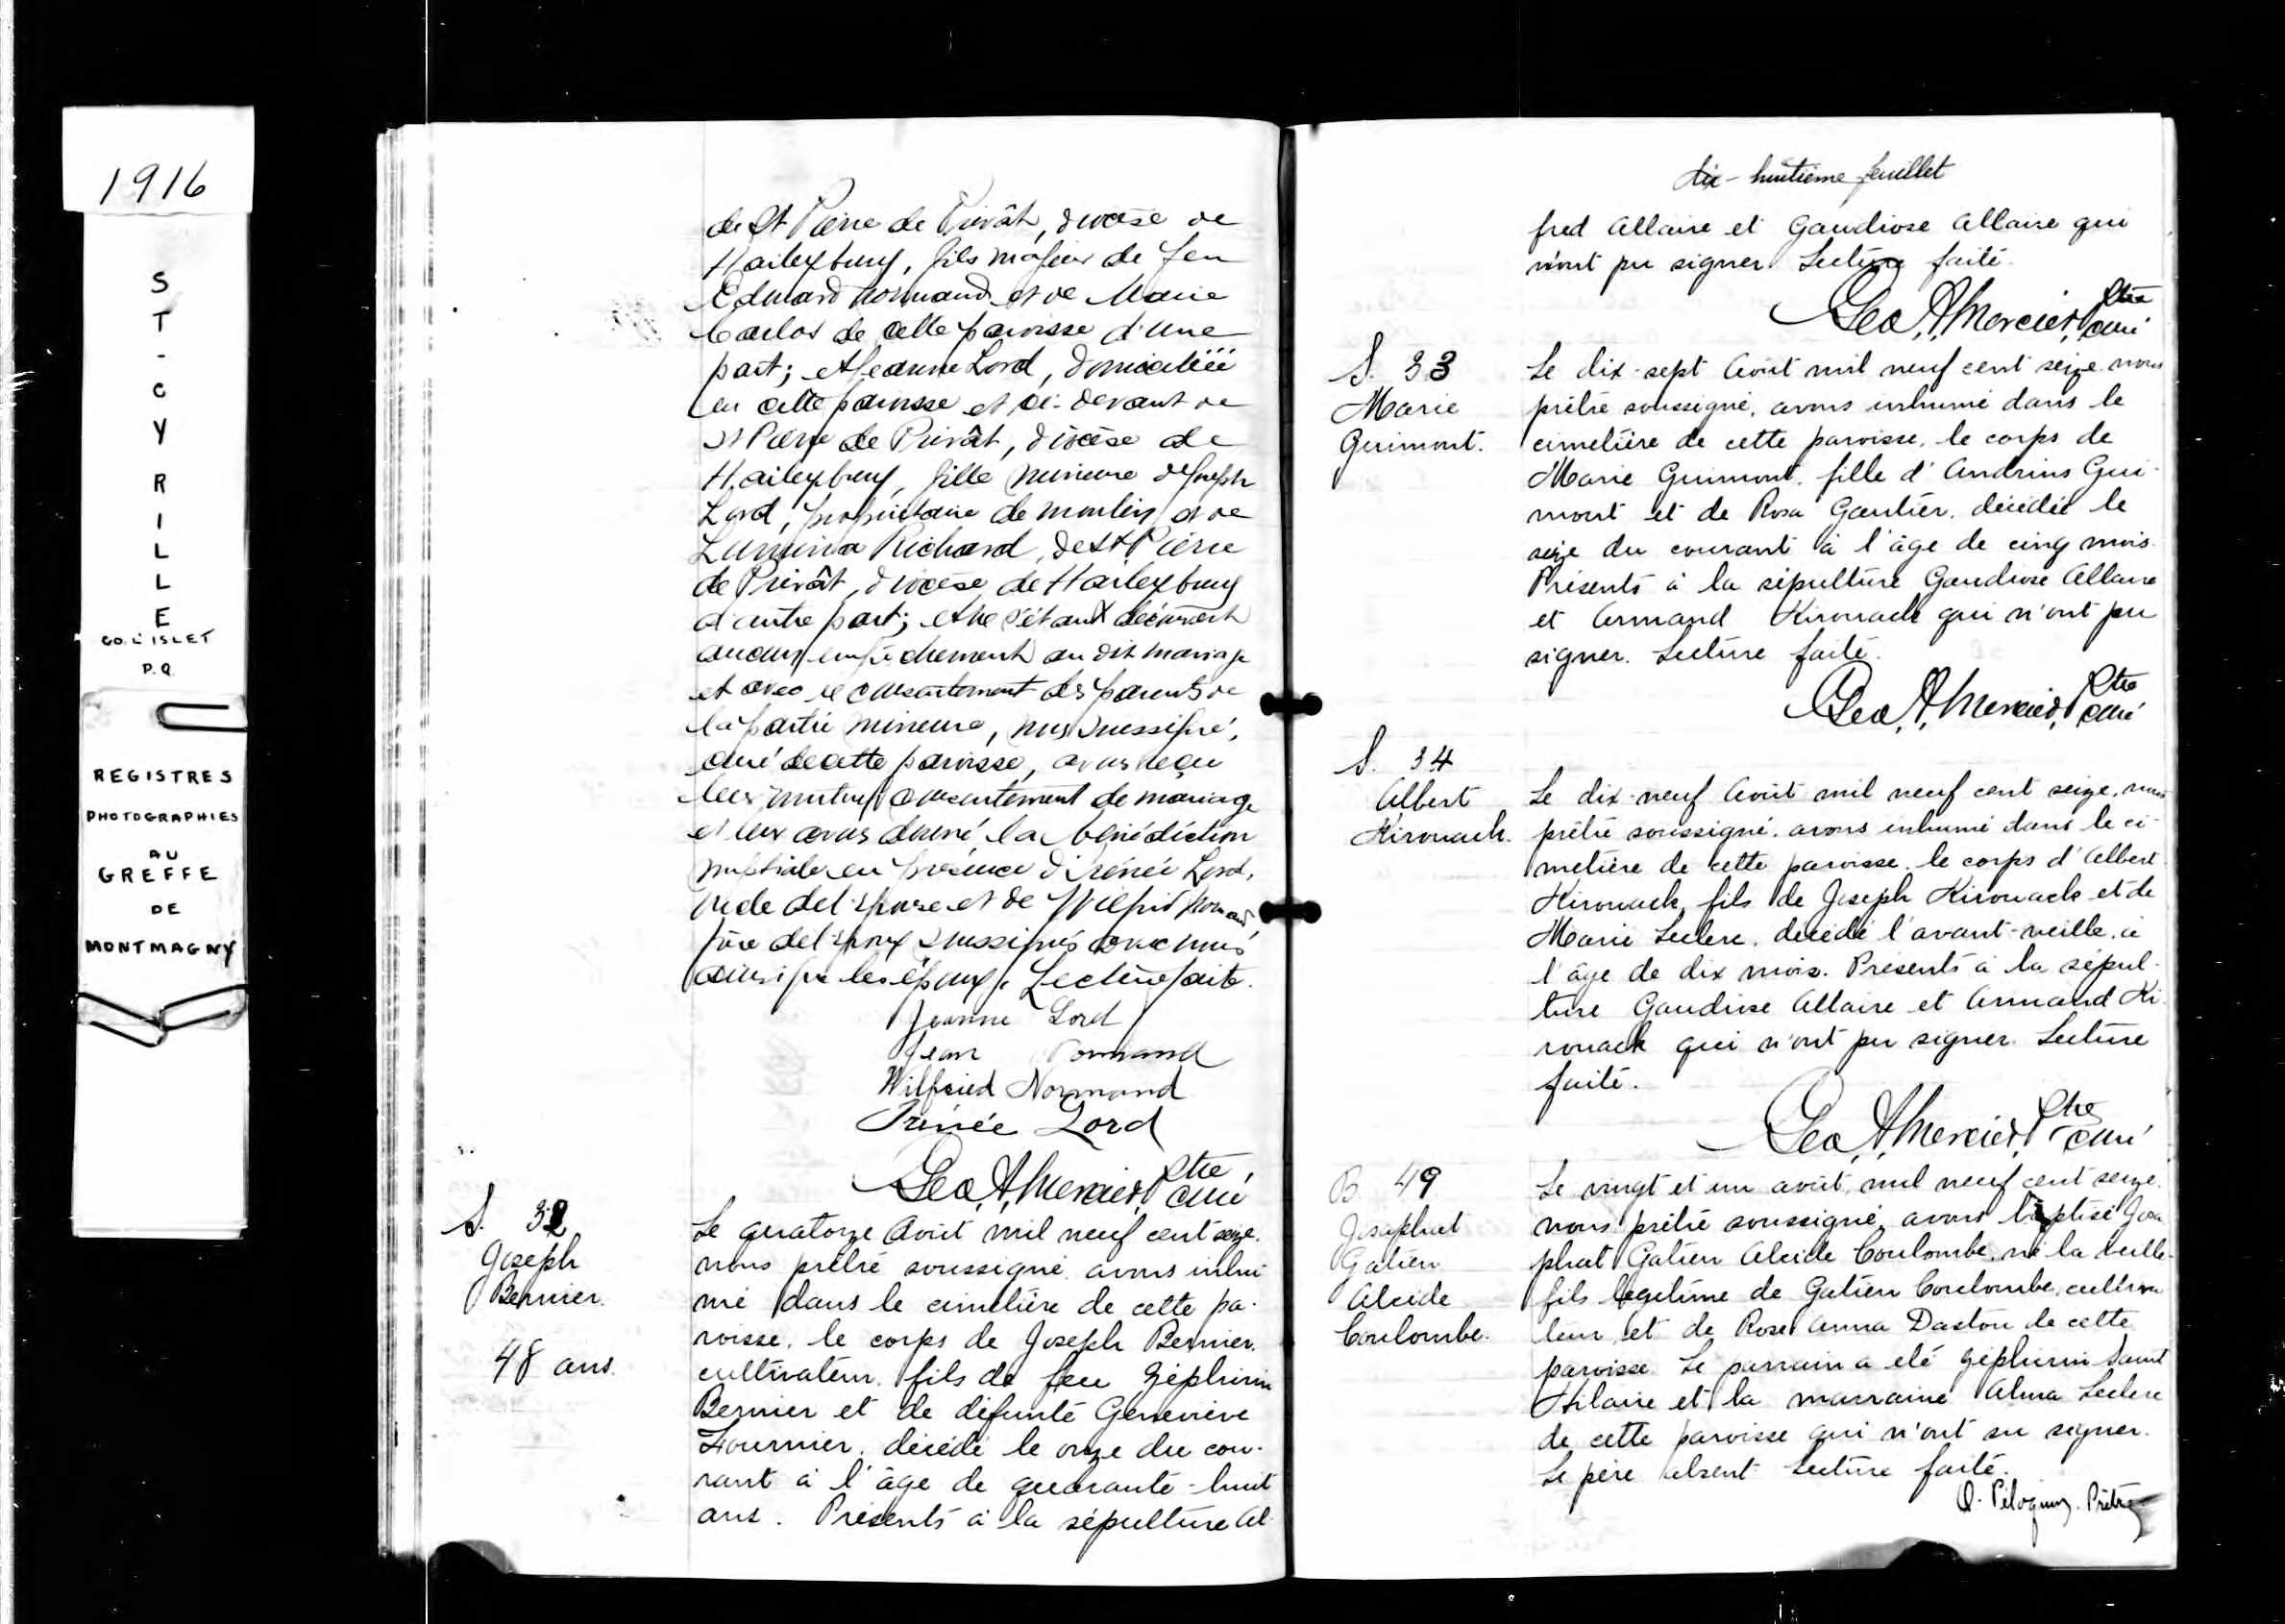 1916
ST-CYRILLE
CO. L'ISLET
P.Q.
REGISTRES
PHOTOGRAPHIES
AU
GREFFE
DE
MONTMAGNY
de St Pierre de Privât, diocèse de
Haileybury, fils majeur de feu
Edouard Normand et de Marie
Carlos de cette paroisse d'une
part; et Jeanne Lord, domiciliée
en cette paroisse et ci-devant de
St Pierre de Privât, diocèse de
Haileybury, fille mineure de Joseph
Lord, propriétaire de moulin et de
Lumina Richard, de St Pierre
de Privât, diocèse de Haileybury
d'autre part; et ne s'étant découvert
aucun empêchement au dit mariage
et avec le consentement des parents de
la partie mineure, nous soussigné,
curé de cette paroisse, avons reçu
leur mutuel consentement de mariage
et leur avons donné la bénédiction
nuptiale en présence d'Irénée Lord,
de l'épouse et de Wilfrid Normand,
de l'époux soussignés avec nous
ainsi que les époux. Lecture faite.
Jeanne Lord
Jean Normand
Wilfried Normand
Irénée Lord
Geo. A. Mercier, Ptre curé
S. 32
Joseph
Bernier.
48 ans.
Le quatorze Août mil neuf cent seize.
nous prêtre soussigné avons inhu
mé dans le cimetière de cette pa-
roisse, le corps de Joseph Bernier.
cultivateur, fils de feu Zéphirin
Bernier et de défunte Geneviève
Fournier. décédé le onze du cou-
rant à l'âge de quarante-huit
ans. Présents à la sépulture Al-
dix-huitième feuillet
fred Allaire et Gaudiose Allaire qui
n'ont pu signer. Lecture faite.
Geo. A. Mercier, Ptre curé
S. 33
Marie
Guimont.
Le dix-sept Août mil neuf cent seize nous
prêtre soussigné, avons inhumé dans le
cimetière de cette paroisse, le corps de
Marie Guimont, fille d'Andrius Gui-
mont et de Rosa Gautier, décédée le
seize du courant à l'âge de cinq mois.
Présents à la sépulture Gaudiose Allaire
et Armand Kirouack qui n'ont pu
signer. Lecture faite.
Geo. A. Mercier, Ptre curé
S. 34
Albert
Kirouack.
Le dix-neuf Août mil neuf cent seize, nous
prêtre soussigné, avons inhumé dans le ci-
metière de cette paroisse, le corps d'Albert
Kirouack, fils de Joseph Kirouack et de
Marie Leclerc, décédé l'avant-veille, à
l'âge de dix mois. Présents à la sépul-
ture Gaudiose Allaire et Armand Ki-
rouack qui n'ont pu signer. Lecture
faite.
Geo. A. Mercier, Ptre curé
B. 49
Josaphat
Galien
Alcide
Coulombe.
Le vingt et un août, mil neuf cent seize.
nous prêtre soussigné, avons baptisé Josa
phat Galien Alcide Coulombe, né la veille.
fils légitime de Galien Coulombe, cultiva
teur et de Rose Anna Daston de cette
paroisse. Le parrain a été Zéphirin Saint
Hilaire et la marraine Alma Leclerc
de cette paroisse qui n'ont su signer.
Le père absent. Lecture faite.
O. Péloquin. Prêtre